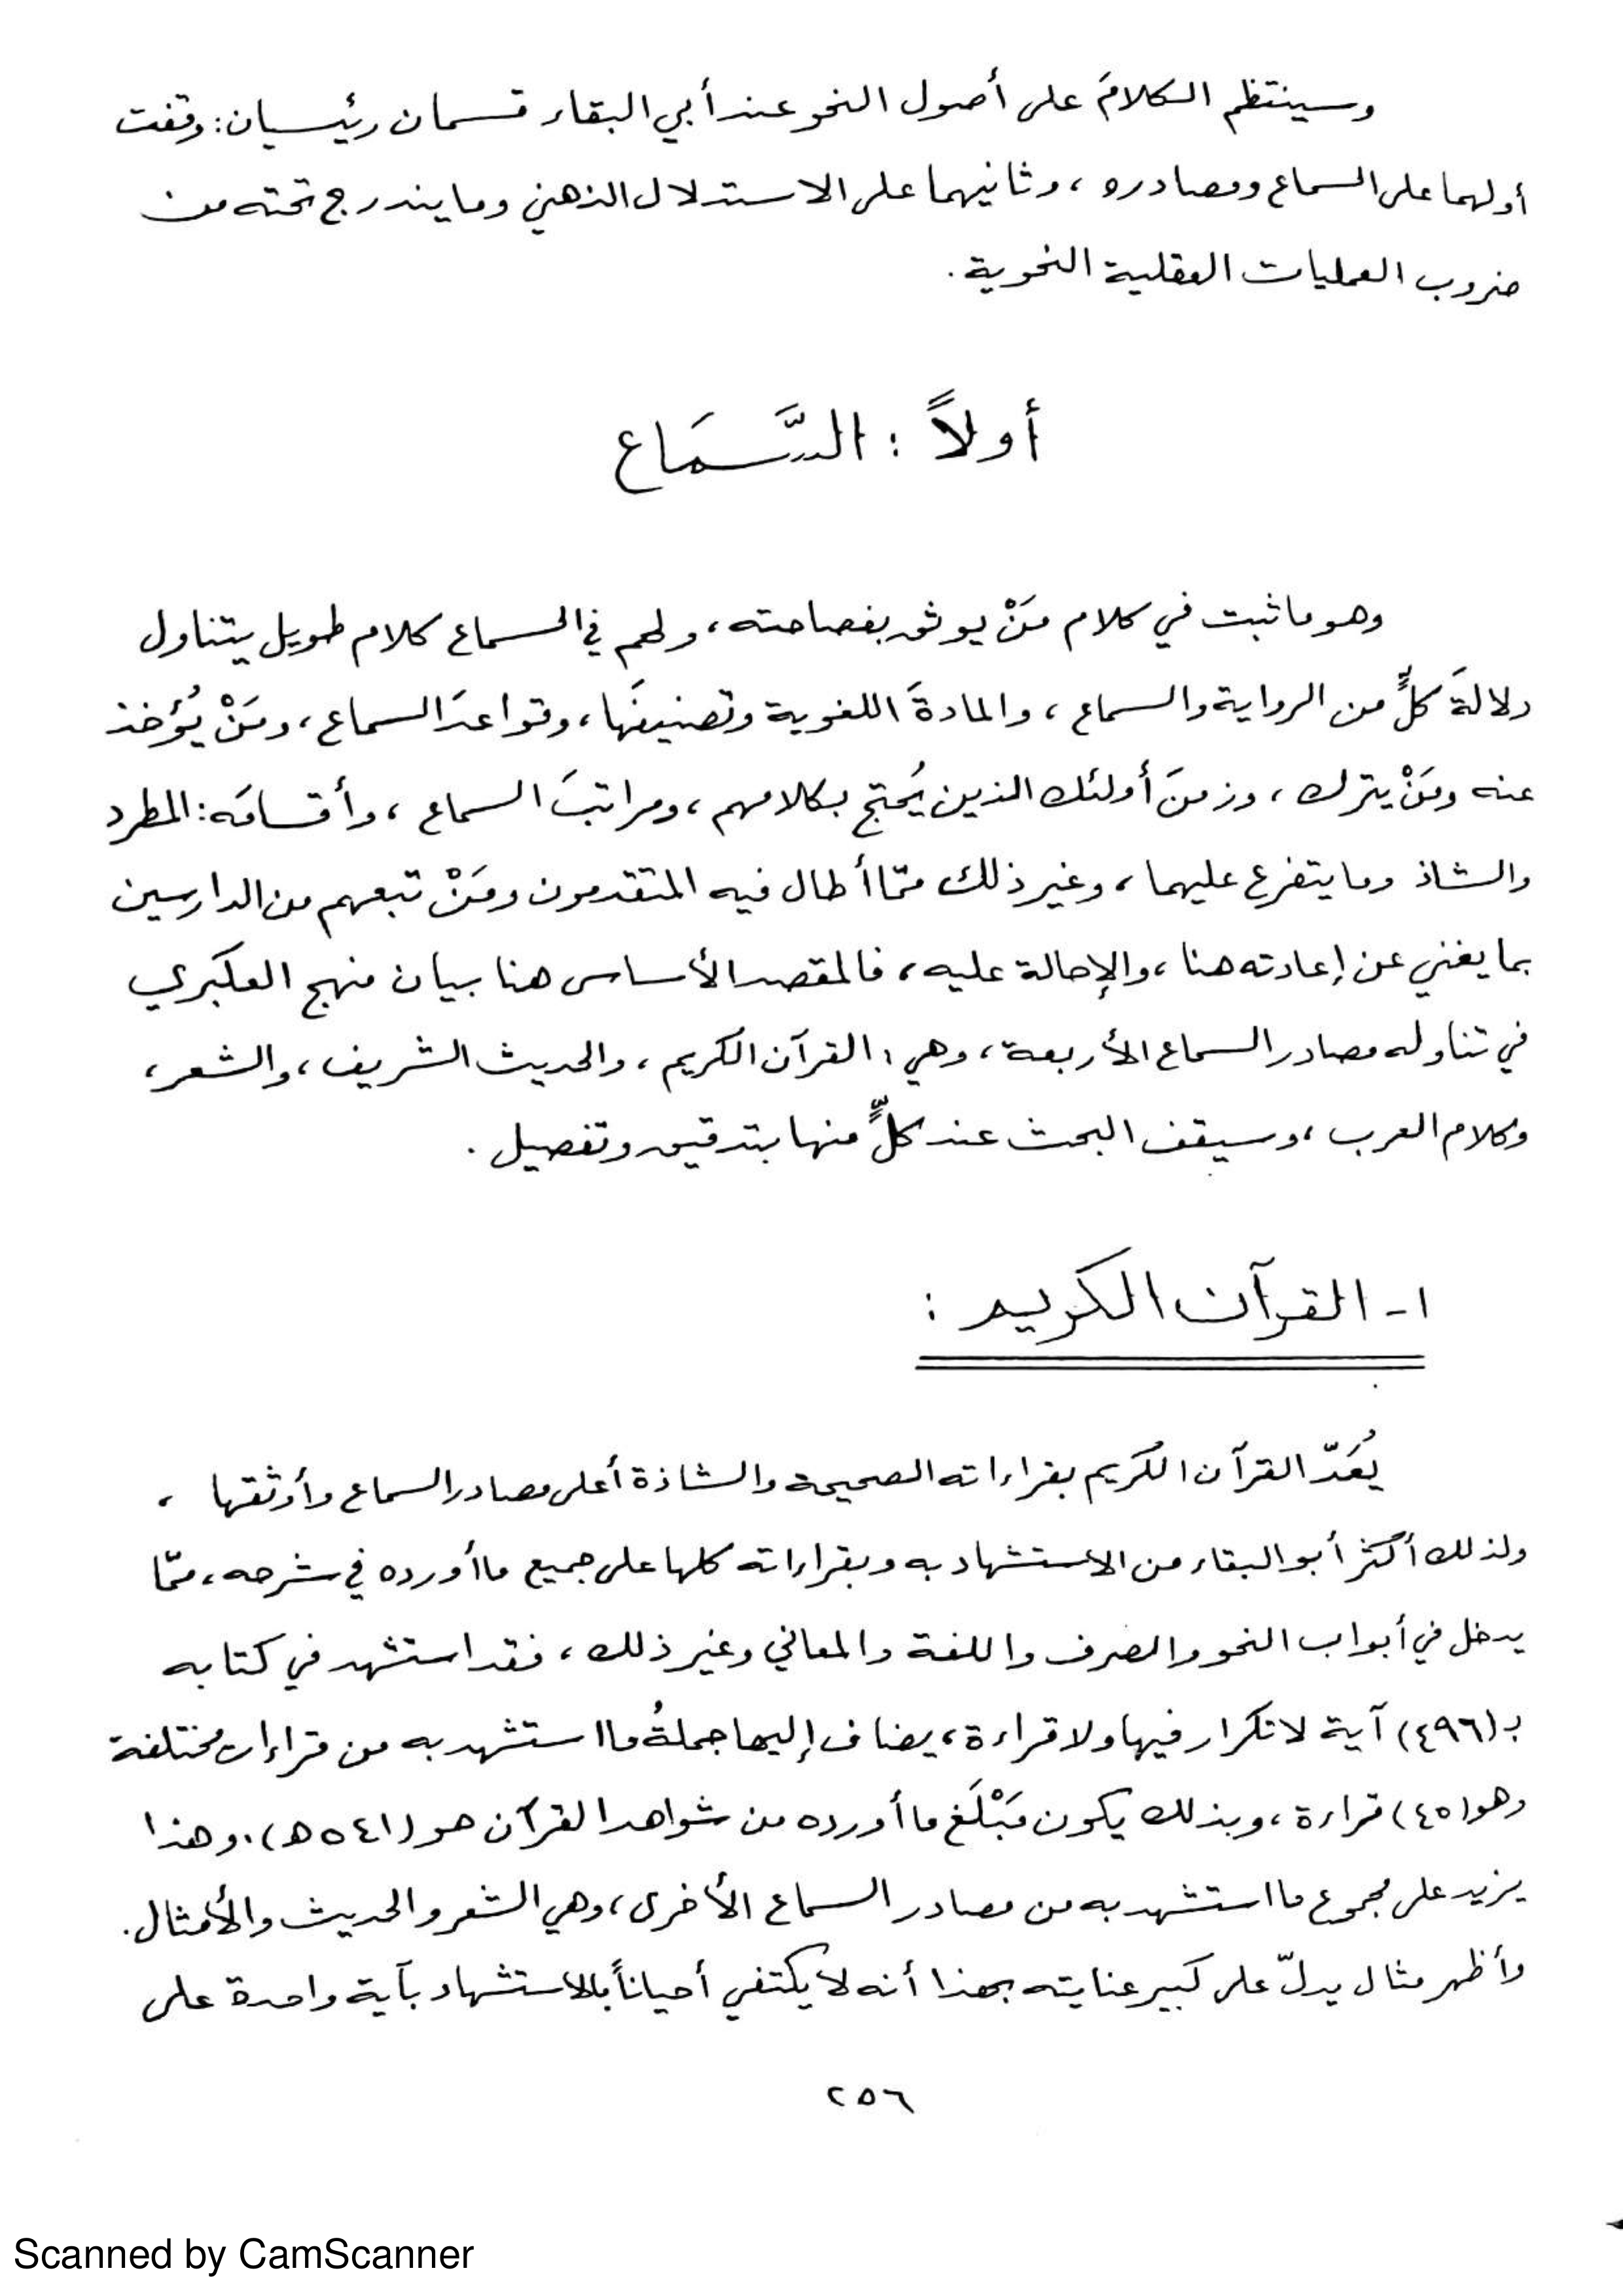 وسينتظم الكلامَ على أصول النحو عند أبي البقاء قسمان رئيسيان: وقفت
أولهما على السماع ومصادره، وثانيهما على الاستدلال الذهني وما يندرج تحته من
ضروب العمليات العقلية النحوية.
أولاً: السَّمَاع
وهو ما ثبت في كلام مَنْ يوثق بفصاحته، ولهم في السماع كلام طويل يتناول
دلالةَ كلٍّ من الرواية والسماع، والمادةَ اللغوية وتصنيفَها، وقواعدَ السماع، ومَنْ يُؤخذ
عنه ومَنْ يترك، وزمنَ أولئك الذين يُحتج بكلامهم، ومراتبَ السماع، وأقسامَه: المطرد
والشاذ وما يتفرع عليهما، وغير ذلك ممّا أطال فيه المتقدمون ومَنْ تبعهم من الدارسين
بما يغني عن إعادته هنا، والإحالة عليه، فالمقصد الأساس هنا بيان منهج العكبري
في تناوله مصادر السماع الأربعة، وهي: القرآن الكريم، والحديث الشريف، والشعر،
وكلام العرب، وسيقف البحث عند كلٍّ منها بتدقيق وتفصيل.
١- القرآن الكريم:
يُعَدّ القرآن الكريم بقراءاته الصحيحة والشاذة أعلى مصادر السماع وأوثقها،
ولذلك أكثر أبو البقاء من الاستشهاد به وبقراءاته كلها على جميع ما أورده في شرحه، ممّا
يدخل في أبواب النحو والصرف واللغة والمعاني وغير ذلك، فقد استشهد في كتابه
بـ (٤٩٦) آية لا تكرار فيها ولا قراءة، يضاف إليها جملةُ ما استشهد به من قراءات مختلفة
وهو (٤٥) قراءة، وبذلك يكون مَبْلَغ ما أورده من شواهد القرآن هو (٥٤١ هـ). وهذا
يزيد على مجموع ما استشهد به من مصادر السماع الأخرى، وهي الشعر والحديث والأمثال.
وأظهر مثال يدلّ على كبير عنايته بهذا أنه لا يكتفي أحياناً بالاستشهاد بآية واحدة على
٢٥٦
Scanned by CamScanner